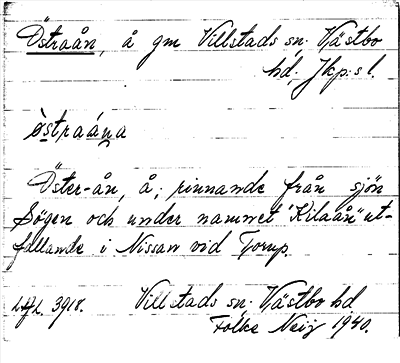 Östraån, å gm Villstads sn. Västbo
hd, Jkp:s l.
òstraána
Öster-ån, å; rinnande från sjön
Sögen och under namnet "Kilaån" ut-
fallande i Nissan vid Torup.
3918. Villstads sn. Västbo hd.
Folke Neij 1940.